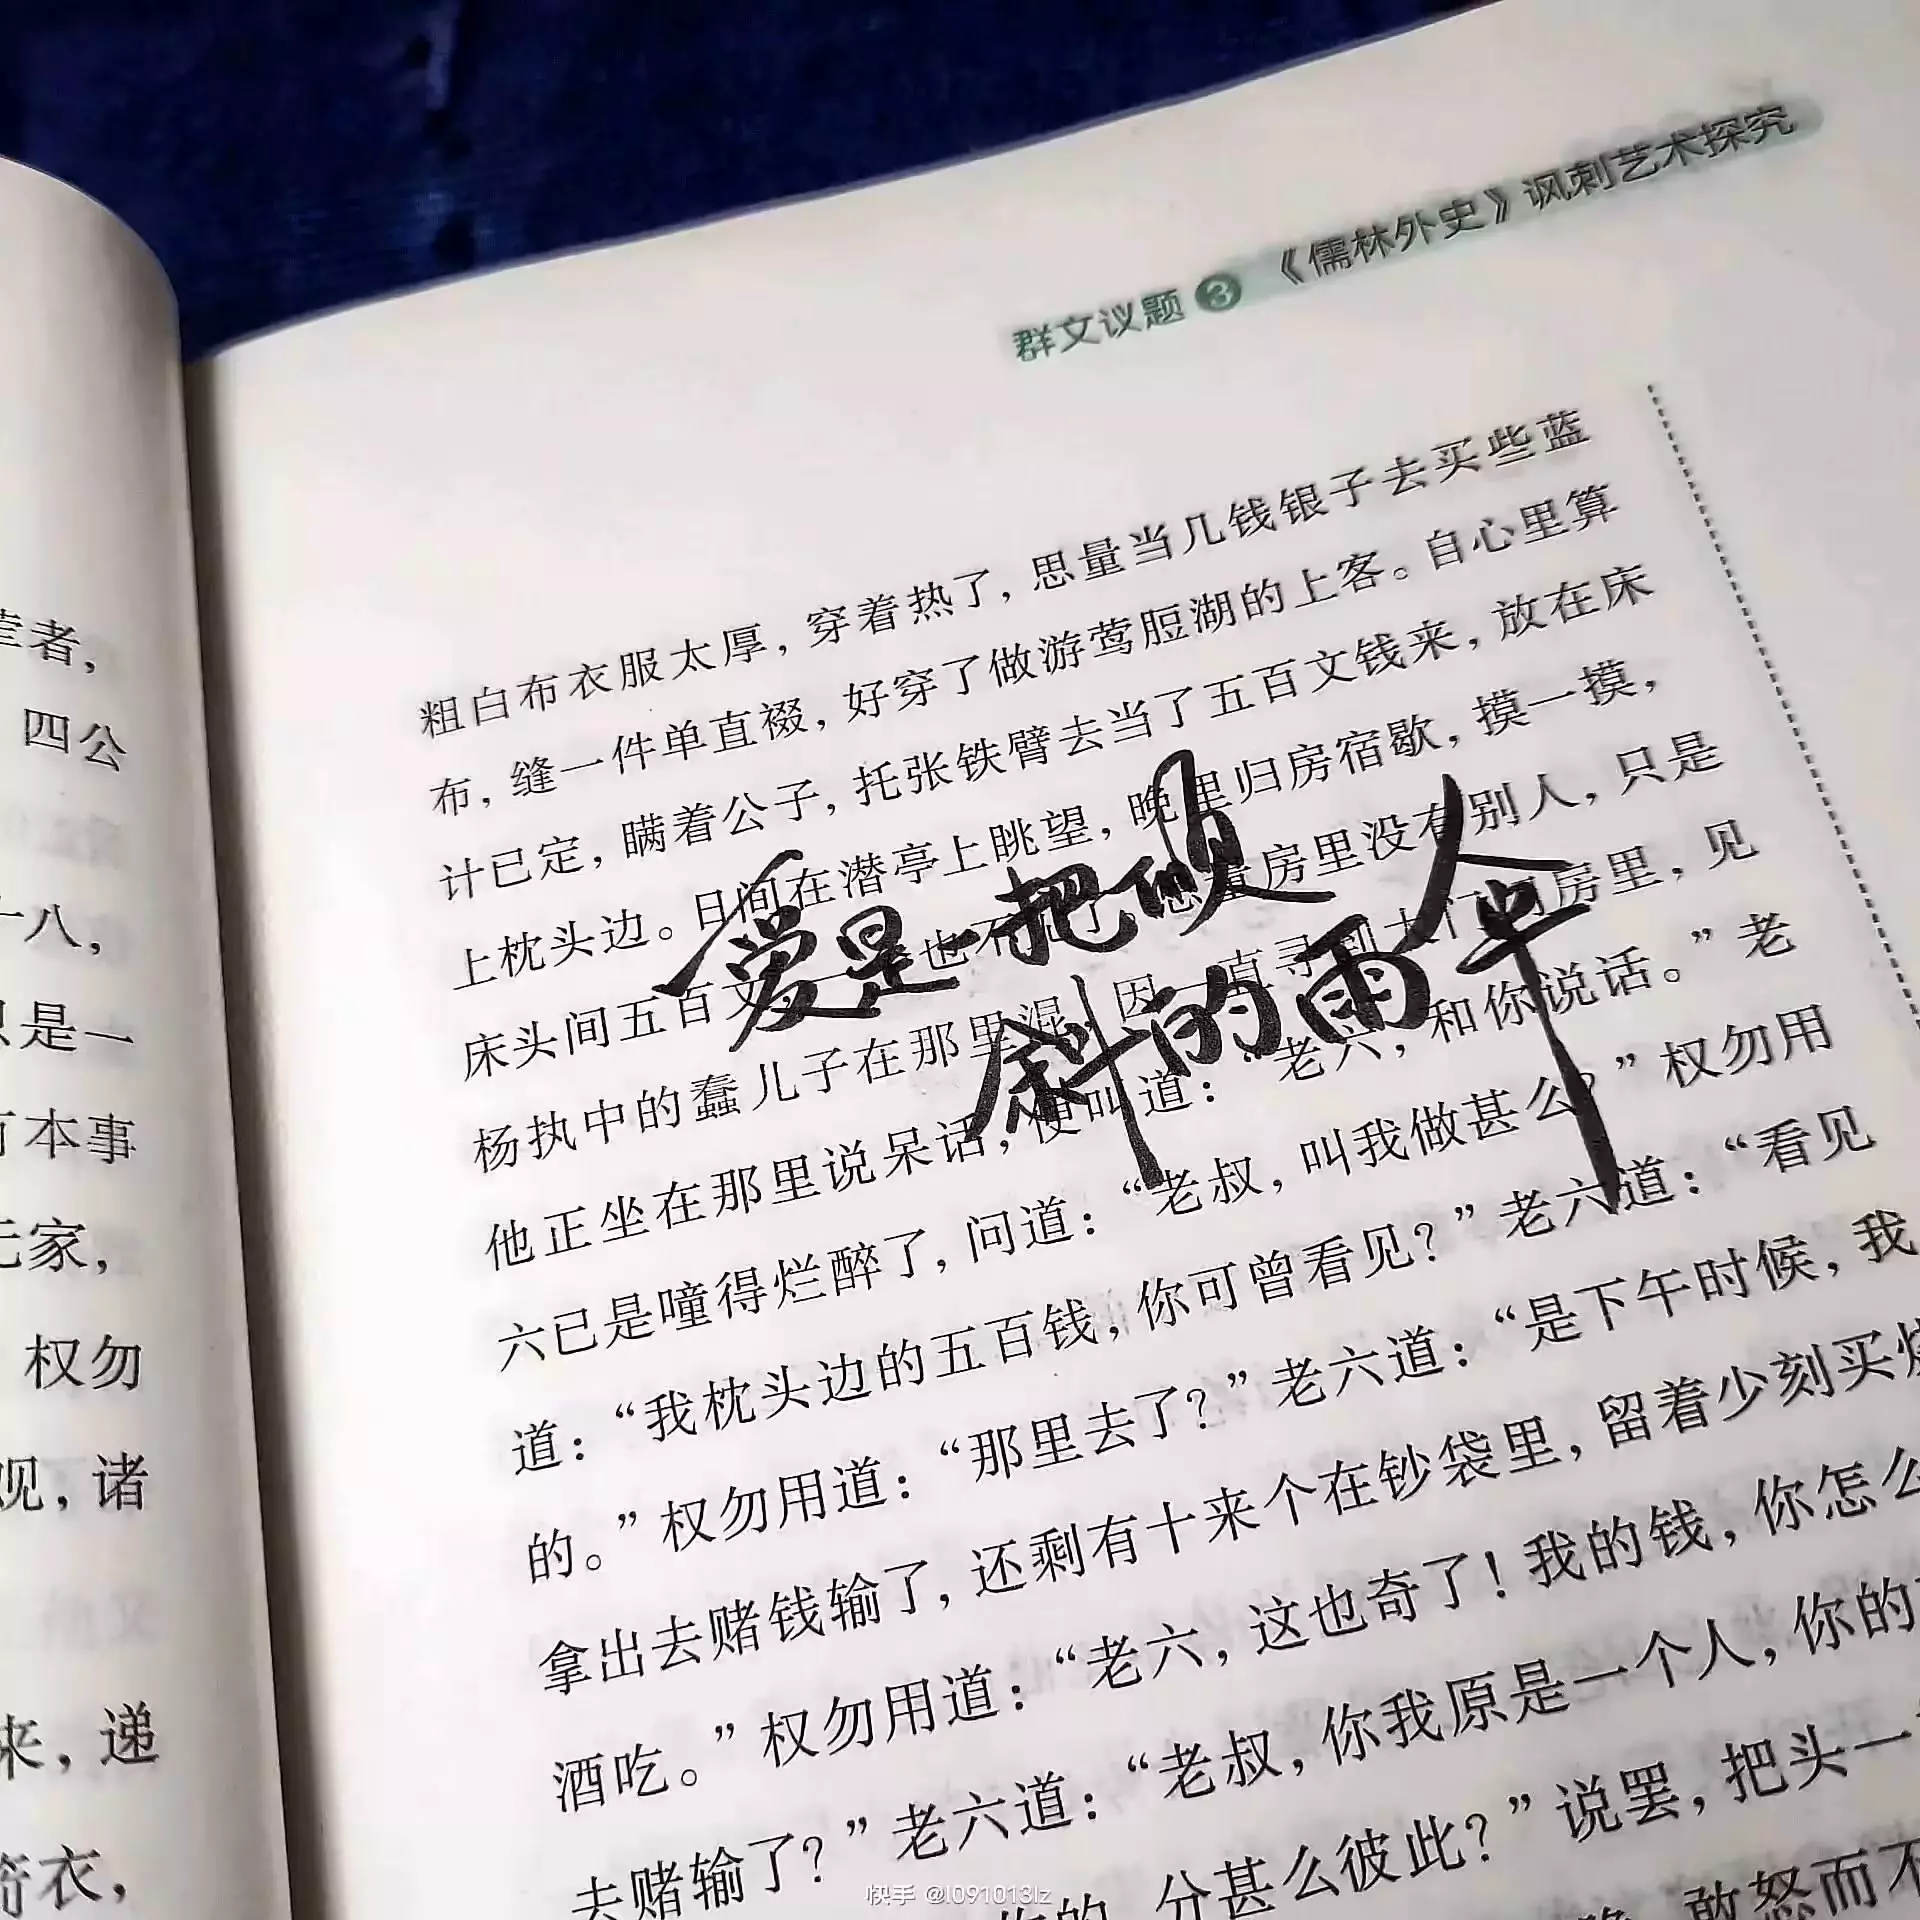 群文议题 3 《儒林外史》讽刺艺术探究
者,
四公
十八,
是一
本事
家,
权勿
观, 诸
来, 递
箭衣,
粗白布衣服太厚, 穿着热了, 思量当几钱银子去买些蓝
布, 缝一件单直裰, 好穿了做游莺脰湖的上客。自心里算
计已定, 瞒着公子, 托张铁臂去当了五百文钱来, 放在床
上枕头边。日间在潜亭上眺望, 晚里归房宿歇, 摸一摸,
床头间五百文 也不 房里没有别人, 只是
杨执中的蠢儿子在那里混, 因一直寻到大门 房里, 见
他正坐在那里说呆话, 便叫道: “老六, 和你说话。”老
六已是噇得烂醉了, 问道: “老叔, 叫我做甚么?”权勿用
道: “我枕头边的五百钱, 你可曾看见?”老六道: “看见
的。”权勿用道: “那里去了?”老六道: “是下午时候, 我
拿出去赌钱输了, 还剩有十来个在钞袋里, 留着少刻买烧
酒吃。”权勿用道: “老六, 这也奇了! 我的钱, 你怎么
去赌输了?”老六道: “老叔, 你我原是一个人, 你的
的, 分甚么彼此?”说罢, 把头一
敢怒而不
爱是一把倾
斜的雨伞
快手 @l091013lz